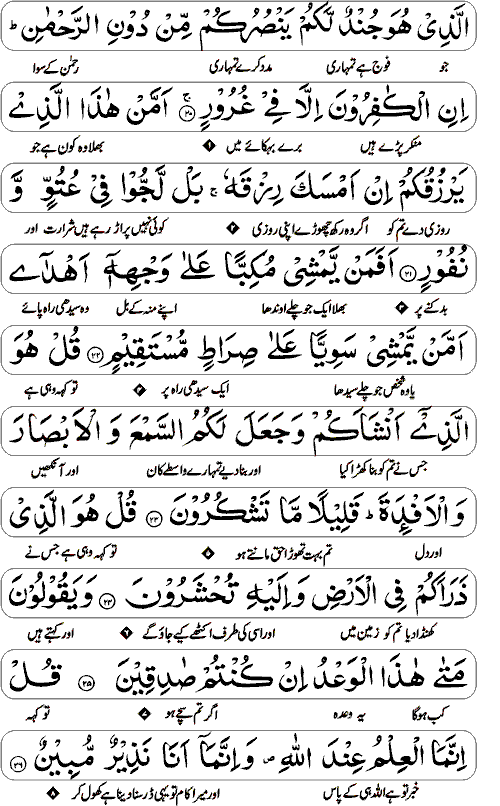 الَّذِىْ هُوَ جُنْدٌ لَّكُمْ يَنْصُرُكُمْ مِّنْ دُوْنِ الرَّحْمٰنِ ؕ
جو فوج ہے تمہاری مدد کرے تمہاری رحمٰن کے سوا
اِنِ الْكٰفِرُوْنَ اِلَّا فِىْ غُرُوْرٍ ۚ ﴿۲۰﴾ اَمَّنْ هٰذَا الَّذِىْ
منکر پڑے ہیں نرے بہکائے میں ۱ بھلا وہ کون ہے جو
يَرْزُقُكُمْ اِنْ اَمْسَكَ رِزْقَهٗ ۚ بَلْ لَّجُّوْا فِىْ عُتُوٍّ وَّ
روزی دے تم کو اگر وہ رکھ چھوڑے اپنی روزی ۲ کوئی نہیں پر اڑ رہے ہیں شرارت اور
نُفُوْرٍ ﴿۲۱﴾ اَفَمَنْ يَّمْشِىْ مُكِبًّا عَلٰى وَجْهِهٖۤ اَهْدٰٓى
بدکنے پر ۳ بھلا ایک جو چلے اوندھا اپنے منہ کے بل وہ سیدھی راہ پائے
اَمَّنْ يَّمْشِىْ سَوِيًّا عَلٰى صِرَاطٍ مُّسْتَقِيْمٍ ﴿۲۲﴾ قُلْ هُوَ
یا وہ شخص جو چلے سیدھا ایک سیدھی راہ پر ۴ تو کہہ وہی ہے
الَّذِىْۤ اَنْشَاَكُمْ وَجَعَلَ لَكُمُ السَّمْعَ وَ الْاَبْصَارَ
جس نے تم کو بنا کھڑا کیا اور بنا دیے تمہارے واسطے کان اور آنکھیں
وَ الْاَفْئِدَةَ ؕ قَلِيْلًا مَّا تَشْكُرُوْنَ ﴿۲۳﴾ قُلْ هُوَ الَّذِىْ
اور دل تم بہت تھوڑا حق مانتے ہو ۵ تو کہہ وہی ہے جس نے
ذَرَاَكُمْ فِى الْاَرْضِ وَاِلَيْهِ تُحْشَرُوْنَ ﴿۲۴﴾ وَيَقُوْلُوْنَ
کھنڈا دیا تم کو زمین میں اور اسی کی طرف اکٹھے کیے جاؤ گے ۶ اور کہتے ہیں
مَتٰى هٰذَا الْوَعْدُ اِنْ كُنْتُمْ صٰدِقِيْنَ ﴿۲۵﴾ قُلْ
کب ہوگا یہ وعدہ اگر تم سچے ہو تو کہہ
اِنَّمَا الْعِلْمُ عِنْدَ اللّٰهِ ۪ وَاِنَّمَاۤ اَنَا نَذِيْرٌ مُّبِيْنٌ ﴿۲۶﴾
خبر تو ہے اللہ ہی کے پاس اور میرا کام تو یہی ڈر سنا دینا ہے کھول کر ۸